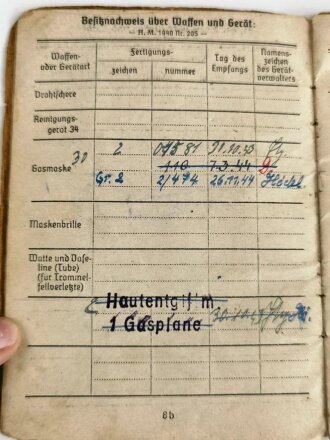 Besitznachweis über Waffen und Gerät:
— H. M. 1940 Nr. 205 —
Waffen- oder Gerätart
Fertigungs-
zeichen
nummer
Tag des Empfangs
Namenszeichen des Gerätverwalters
Drahtschere
Reinigungsgerät 34
Gasmaske 30
2
110 7.3.44
Gr. 2 2/474 26.11.44
Maskenbrille
Watte und Vaseline (Tube) (für Trommelfellverletzte)
Hautentgif'm.
1 Gasplane
6b